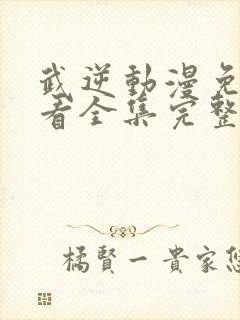 武逆動漫免
看全集完整
橘賢一貴家悠